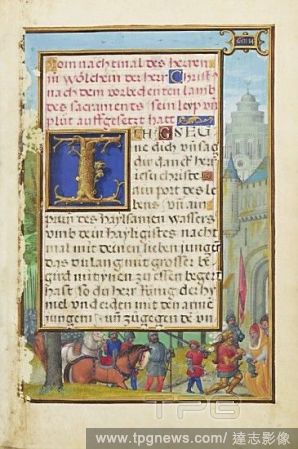 Gen 14
Vom nachtmal des herren
in wölchem der herr Christ
nach dem vorbedenten lamb
des sacraments sein leyp vn
plut auffgesetzt hatt
ICH GSEG
ne dich vn sag
dir danck her
iesu christe
ain port des le
bens vn ain
prun des haylsamen wassers
vmb dein hayligistes nacht
mal mit deinen lieben junger
das du lang mit grosser be
gird mit ynen zu essen begert
hast so du herr könig der hy
mel vnd erden mit den armen
jungern vn zugegen de vn
TPG
www.tpgnews.com/達志影像